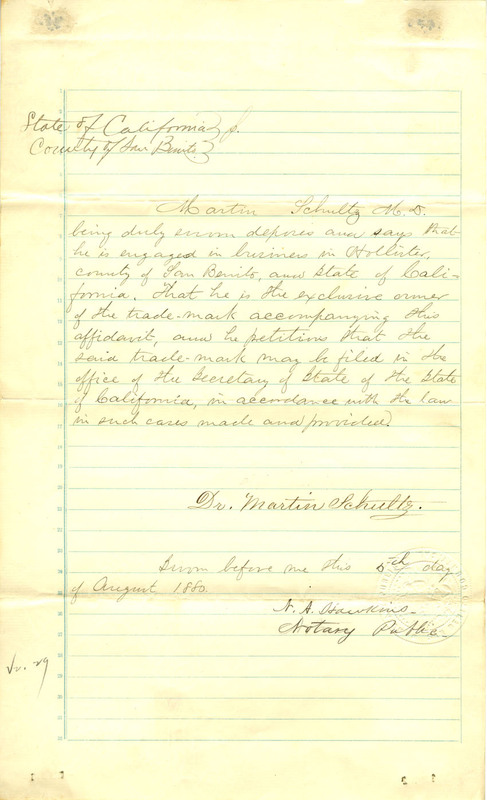 State of California } s.
County of San Benito }
Martin Schultz M.D.
being duly sworn deposes and says that
he is engaged in business in Hollister,
county of San Benito, and State of Cali-
fornia. That he is the exclusive owner
of the trade-mark accompanying this
affidavit, and he petitions that the
said trade-mark may be filed in the
office of the Secretary of State of the State
of California, in accordance with the law
in such cases made and provided.
Dr. Martin Schultz.
Sworn before me this 5th day
of August 1880.
N. A. Hawkins
Notary Public